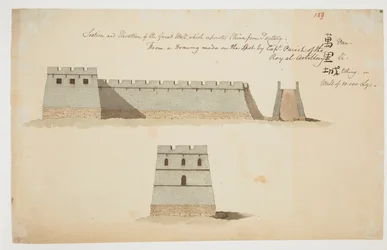 189
Section and Elevation of the Great Wall which separates China from Tartary.
From a Drawing made on the Spot by Capt. Parish of the
Royal Artillery
萬 Van
里 li
城 tching. or
Wall of 10,000 Lys.